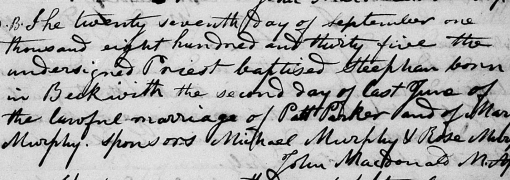 B. The twenty seventh day of september one
thousand eight hundred and thirty five the
undersigned Priest baptised Steephan born
in Beckwith the second day of last June of
the lawful marriage of Patt Parker and of Mar
Murphy. sponsors Michael Murphy & Rose
John MacDonald